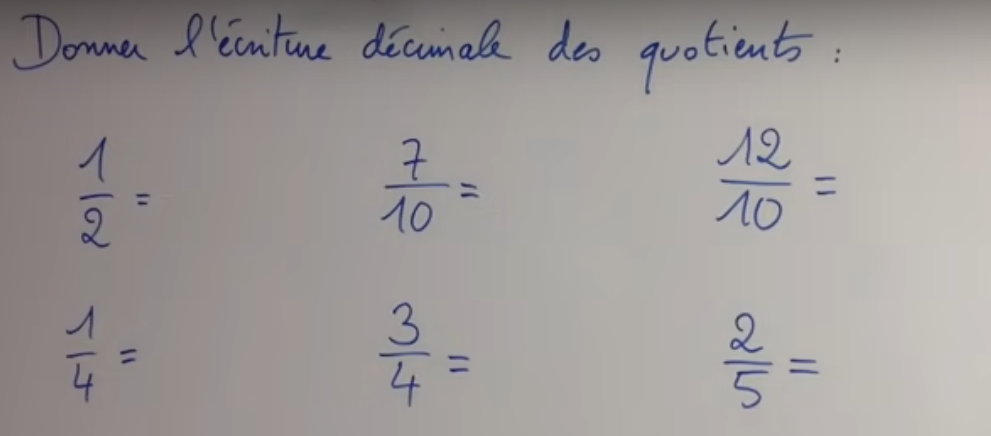 Donner l'écriture décimale des quotients :
1/2 = 7/10 = 12/10 =
1/4 = 3/4 = 2/5 =